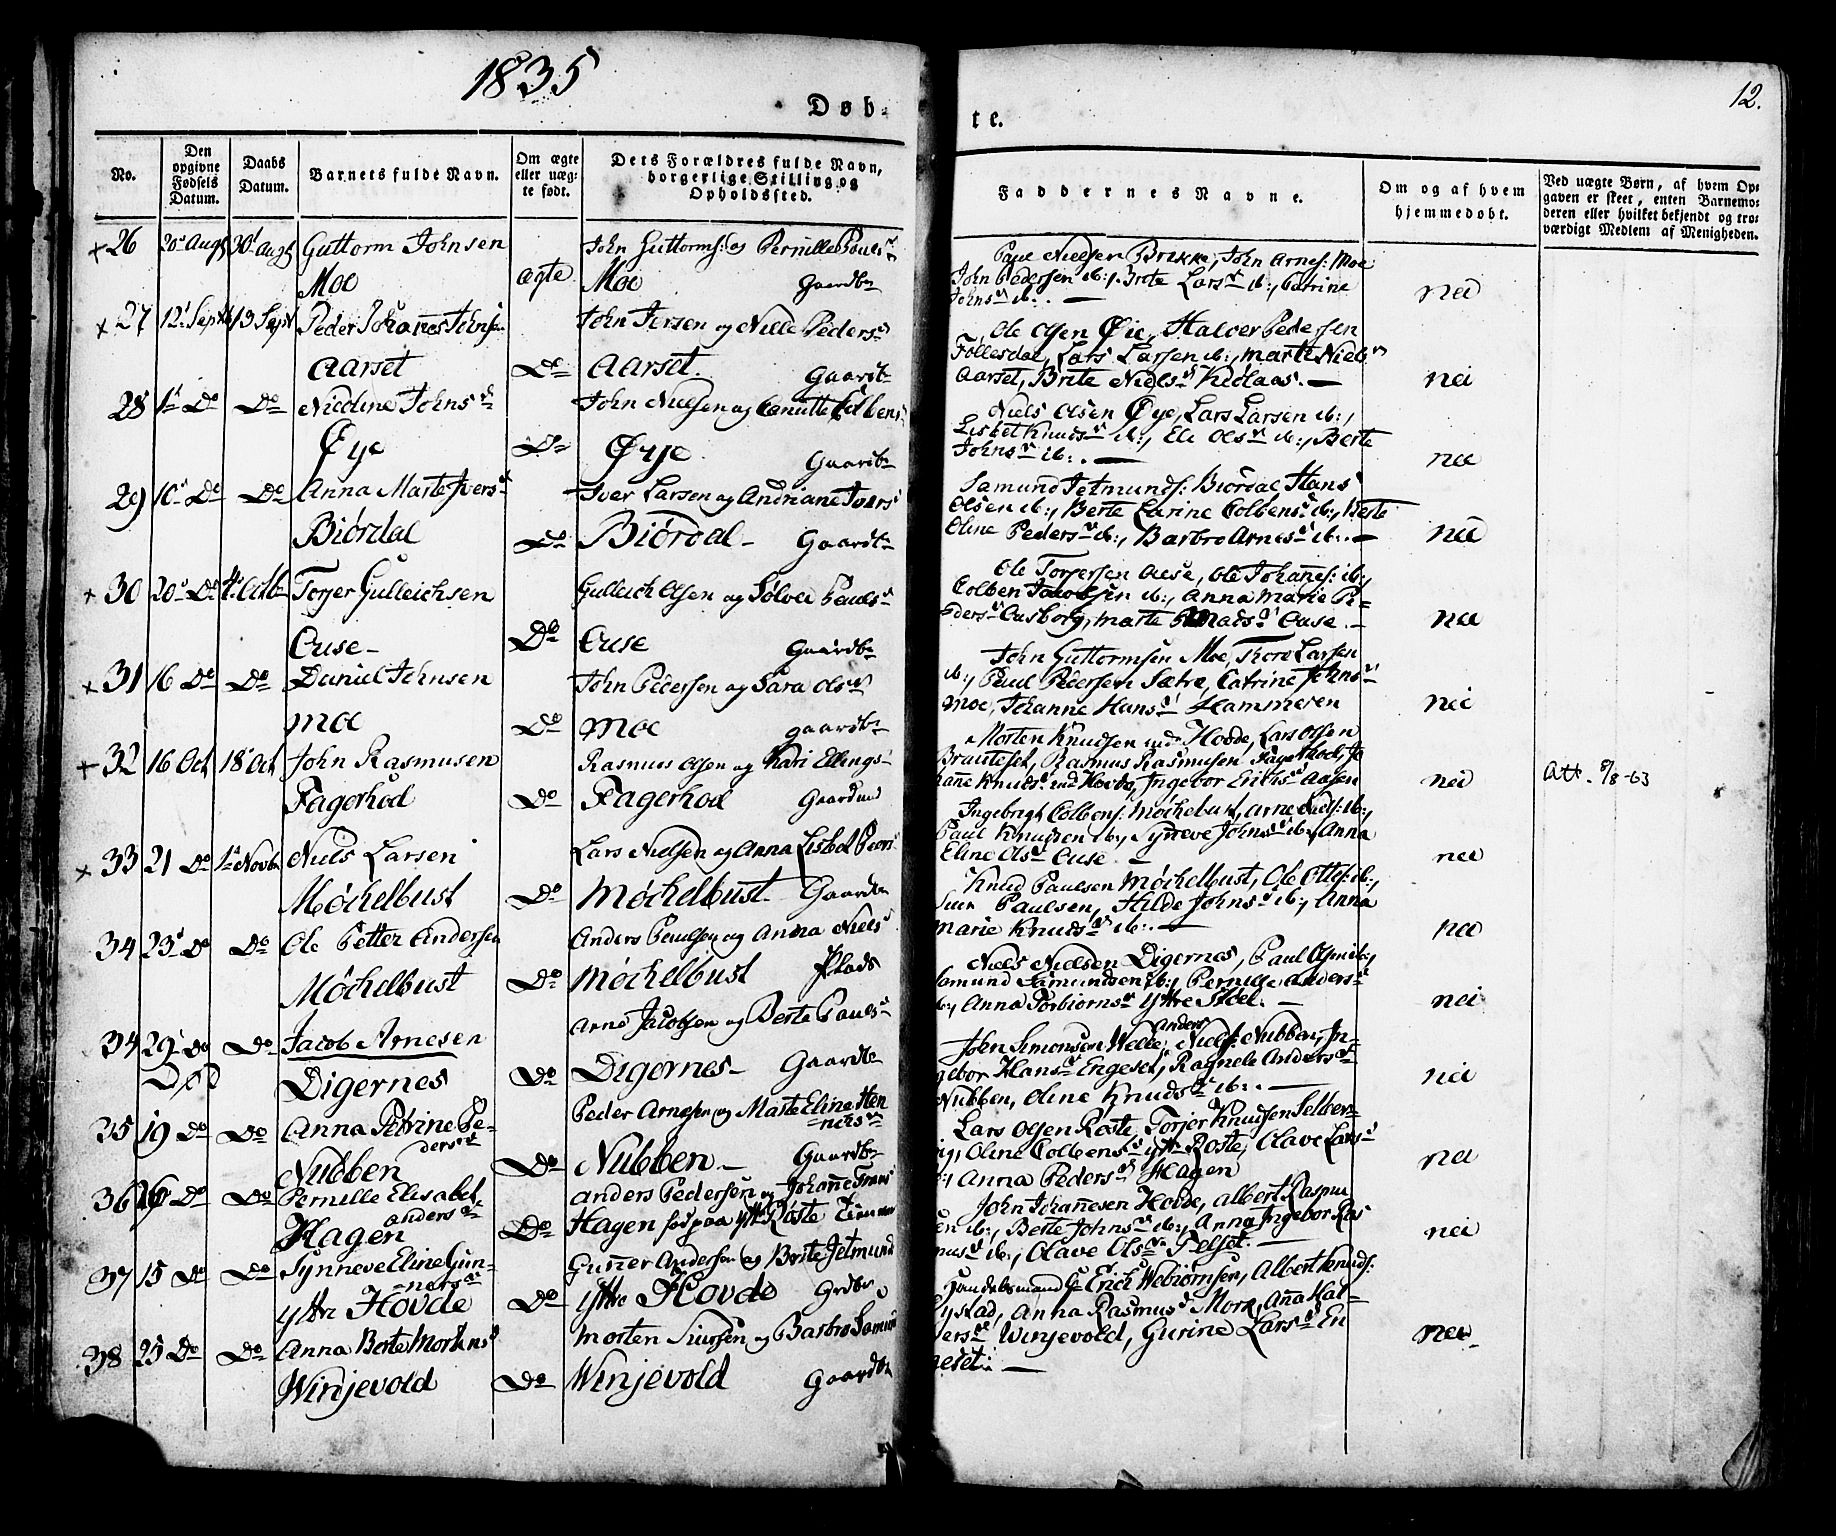 1835
12.
Døb-
te.
No.
Den opgivne Fødsels Datum.
Daabs Datum.
Barnets fulde Navn.
Om ægte eller uægte født.
Dets Forældres fulde Navn, borgerlige Stilling og Opholdssted.
Faddernes Navne.
Om og af hvem hjemmedøbt.
Ved uægte Børn, af hvem Opgaven er skeet, enten Barnemoderen eller hvilket bekjendt og troværdigt Medlem af Menigheden.
+ 26 20de Augst 30t Augst Guttorm Johnsen
Moe
ægte
John Guttorms: og Pernille Pouls
Moe Gaardbr
Paul Nielsen Brække, John Arnes: Moe
John Pedersen ib:, Brite Larsdr ib:, Catrine
Johnsdr ib:. —
nei
+ 27 12t Septbr 13 Sept Peder Johannes Johnsen
Aarset
Do
John Iversen og Nille Pedersdr
Aarset. Gaardbr
Ole Olsen Øie, Halver Pedersen
Føllesdal, Lars Larsen ib:, Marte Nielsdr
Aarset, Brite Nielsdr Kielaas. —
nei
28 1t Do Do Nicoline Johnsdr
Øye
Do
John Nielsen og Canutte Colbens
Øye Gaardbr
Niels Olsen Øye, Lars Larsen ib:,
Lisbet Knudsdr ib:, Ele Olsdr ib:, Berte
Johnsdr ib:. —
nei
29 10t Do Do Anna Marte Iversdr
Biørdal
Do
Iver Larsen og Andriane Ivers
Biørdal — Gaardbr
Samund Jetmunds: Biørdal Hans
Olsen ib:, Berte Carine Colbensdr ib:, Berte
Oline Pedersdr ib:, Barbro Arnesdr ib:. —
nei
+ 30 20de Do 4de Octbr Torjer Gulleichsen
Cuse —
Do
Gulleich Olsen og Sølvei Paulsdr
Cuse Gaardbr
Ole Torjersen Aase, Ole Johannes: ib:,
Colben Jacobsen ib:, Anna Marie Pe=
dersdr Ausborg, Marte Madsdr Cuse. —
nei
+ 31 16 Do Do Daniel Johnsen
Moe
Do
John Pedersen og Sara Olsdr
Moe Gaardbr
John Guttormsen Moe, Thore Larsen
ib:, Paul Pedersen Sætre, Catrine Johnsdr
Moe, Johanne Hansdr Hammeren
nei
+ 32 16 Oct 18de Oct John Rasmusen
Fagerhod
Do
Rasmus Olsen og Kari Ellings
Fagerhod Gaardmd
Morten Knudsen indr Hovde, Lars Olsen
Brauteset, Rasmus Rasmusen Fagerhod, Jo
hanne Knudsdr indr Hovde, Ingebor Eriksdr Aasen
nei
Att. 8/8-63
+ 33 21 Do 1te Novbr Niels Larsen
Møchelbust
Do
Lars Nielsen og Anna Lisbet Peers
Møchelbust — Gaardbr
Ingebrigt Colbens: Møchelbust, Arne Lads: ib:,
Paul Knudsen ib:, Synneve Johnsdr ib:, Anna
Eline Olsdr Cuse —
nei
34 23d Do Do Ole Petter Andersen
Møchelbust
Do
Anders Paulsen og Anna Niels
Møchelbust Plads
Knud Paulsen Møchelbust, Ole Ottes: ib:,
Paulsen, Hilde Johnsdr ib:, Anna
Marie Knudsdr ib:. —
nei
34 29 Do Do Jacob Arnesen
Død
Digernes
Do
Arne Jacobsen og Berte Paulsdr
Digernes — Gaardbr
Niels Nielsen Digernes, Paul Olsen ib:,
Samund Samundsen ib:, Pernille Andersdr
ib:, Anna Torbiornsdr yttre Støel. —
nei
35 19 Do Do Anna Petrine Pe-
dersdr
Nubben
Do
Peder Arnesen og Marte Eline Hen
richsdr
Nubben — Gaardbr
John Simonsen Welle, Anders Niels: Nubben, In-
gebor Hansdr Engeset, Ragnele Andersdr
Nubben, Oline Knudsdr ib:. —
nei
36 16 Do Do Pernille Elisabet
Andersdr
Hagen
Do
Anders Pedersen og Johanne
Hagen fød paa yttre Røste
Lars Olsen Røste, Torjer Knudsen Selber-
vig, Oline Colbensdr yttre Røste, Olave Larsdr
ib:, Anna Pedersdr Hagen
nei
37 15 Do Do Synneve Eline Gun-
nersdr
yttre Hovde
Do
Gunner Andersen og Berte Jetmund
yttre Hovde Grdbr
John Johannesen Hovde, Albert Rasmu
sen ib:, Berte Johnsdr ib:, Anna Ingebor Ras
musdr ib:, Olave Olsdr Pelset. —
nei
38 25 Do Do Anna Berte Mortensdr
Winjevold
Do
Morten Siursen og Barbro Samun
Winjevold Gaardbr
Handelsmand Hr Erich Webiornsen, Albert Knuds:
Rystad, Anna Rasmusdr Mork, Anna Hal-
versdr Winjevold, Gurine Larsdr En
geset: —
nei